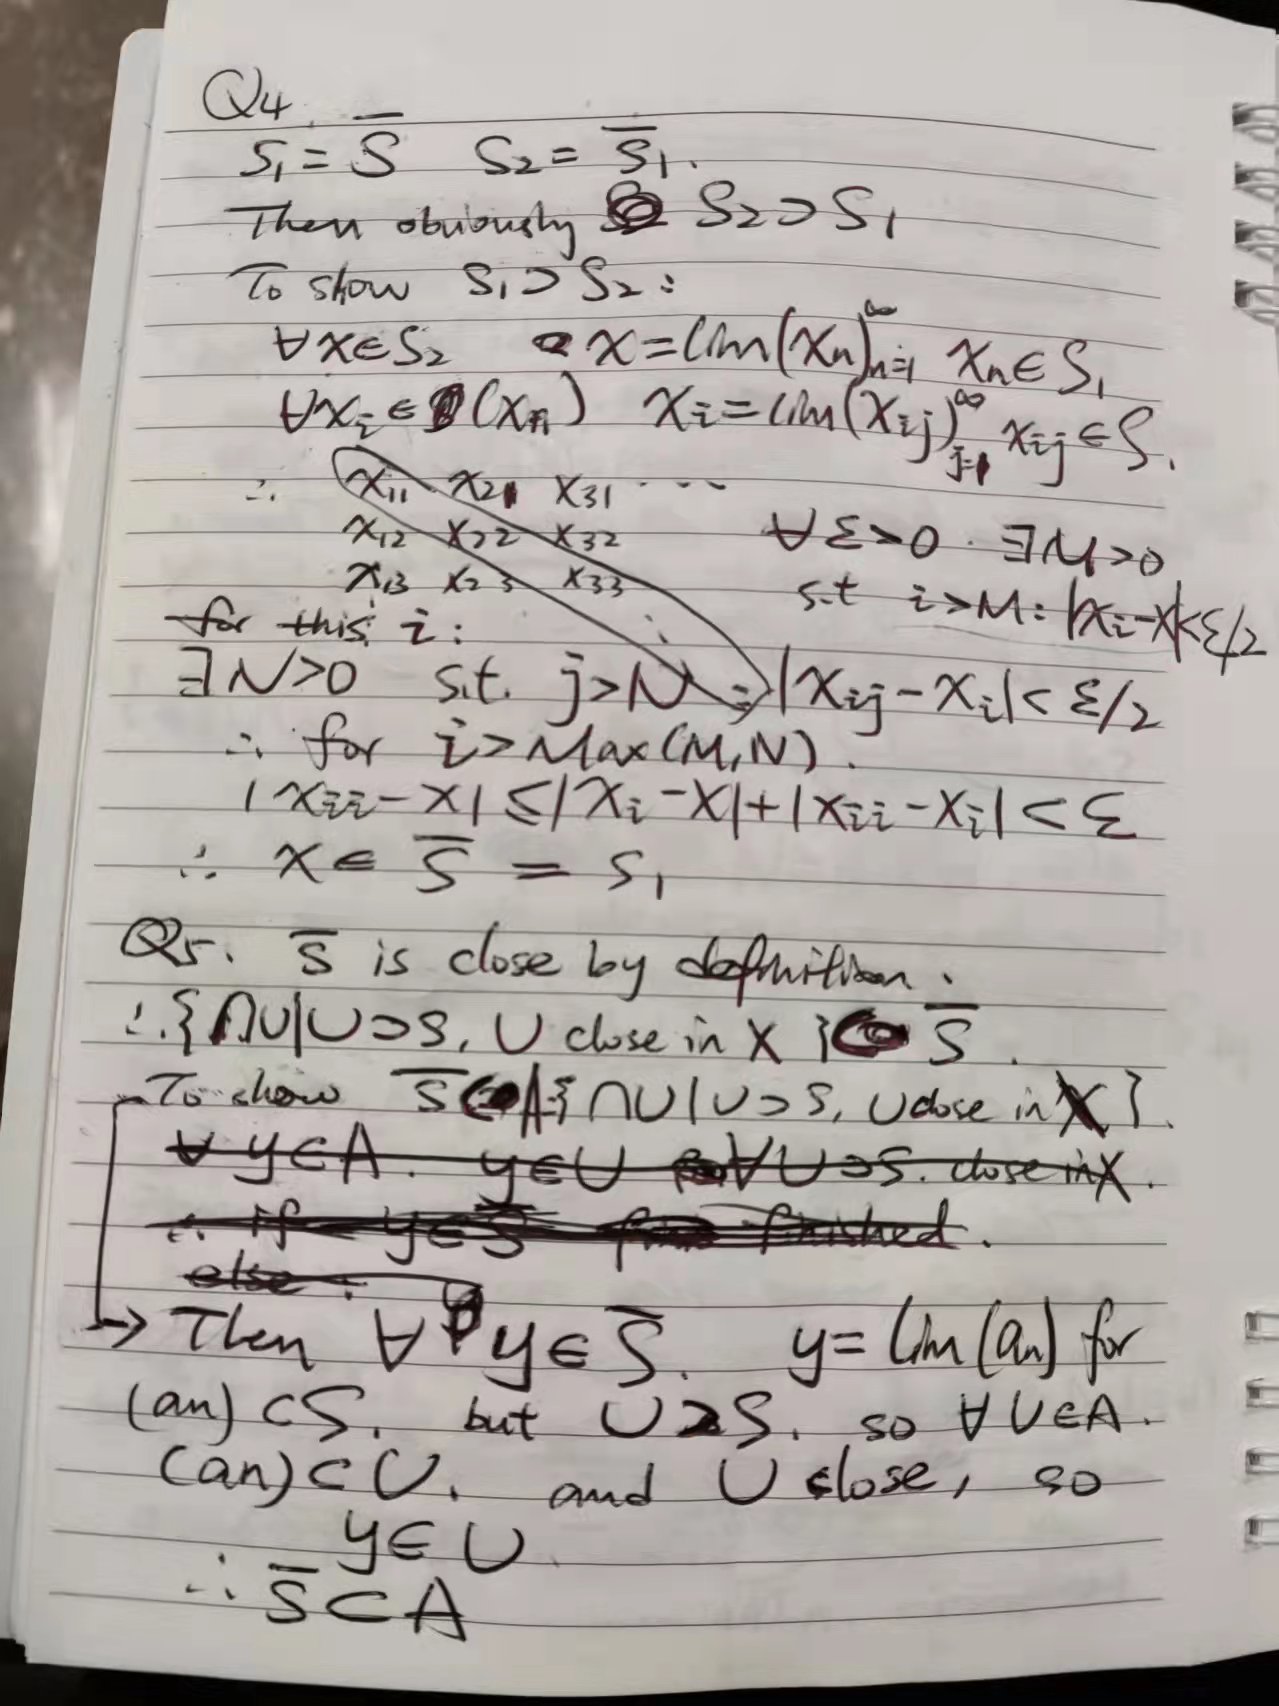 Q4.
S₁ = S̅   S₂ = S̅₁.
Then obviously S₂ ⊃ S₁
To show S₁ ⊃ S₂ :
∀x∈S₂   x = lim(xₙ)ₙ₌₁^∞  xₙ∈S₁
∀xᵢ∈(xₙ)   xᵢ = lim(xᵢⱼ)ⱼ₌₁^∞  xᵢⱼ∈S.
∴  x₁₁  x₂₁  x₃₁ ...
x₁₂  x₂₂  x₃₂   ∀ε>0. ∃M>0
x₁₃  x₂₃  x₃₃   s.t i>M: |xᵢ-x|<ε/2
for this i:
∃N>0  s.t. j>N : |xᵢⱼ - xᵢ| < ε/2
∴ for i > Max(M,N).
|xᵢᵢ - x| ≤ |xᵢ - x| + |xᵢᵢ - xᵢ| < ε
∴ x ∈ S̅ = S₁
Q5. S̅ is close by definition.
∴ {∩U|U⊃S, U close in X} S̅.
To show S̅ A={∩U|U⊃S, U close in X}.
∀ y∈A. y∈U ∀U⊃S. close in X.
∴ if y∈S̅ finished.
else :
→ Then ∀ y∈S̅.   y = lim(an) for
(an)⊂S. but U⊃S. so ∀U∈A.
(an)⊂U. and U close, so
y∈U
∴ S̅⊂A